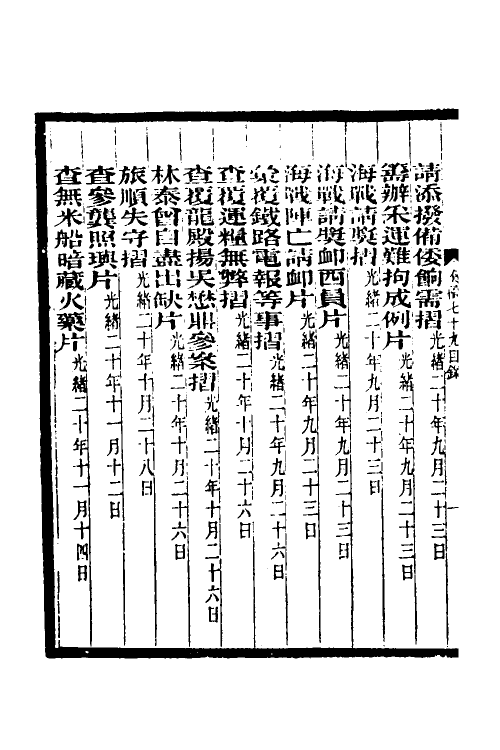 奏稿七十九目錄
一
請添撥備倭餉需摺光緒二十年九月二十三日
籌辦米運難拘成例片光緒二十年九月二十三日
海戰請獎摺光緒二十年九月二十三日
海戰請獎卹西員片光緒二十年九月二十三日
海戰陣亡請卹片光緒二十年九月二十三日
彙覆鐵路電報等事摺光緒二十年九月二十六日
查覆運糧無弊摺光緒二十年十月二十六日
查覆龍殿揚吳懋鼎參案摺光緒二十年十月二十六日
林泰曾自盡出缺片光緒二十年十月二十六日
旅順失守摺光緒二十年十月二十八日
查參龔照璵片光緒二十年十一月十二日
查無米船暗藏火藥片光緒二十年十一月十四日